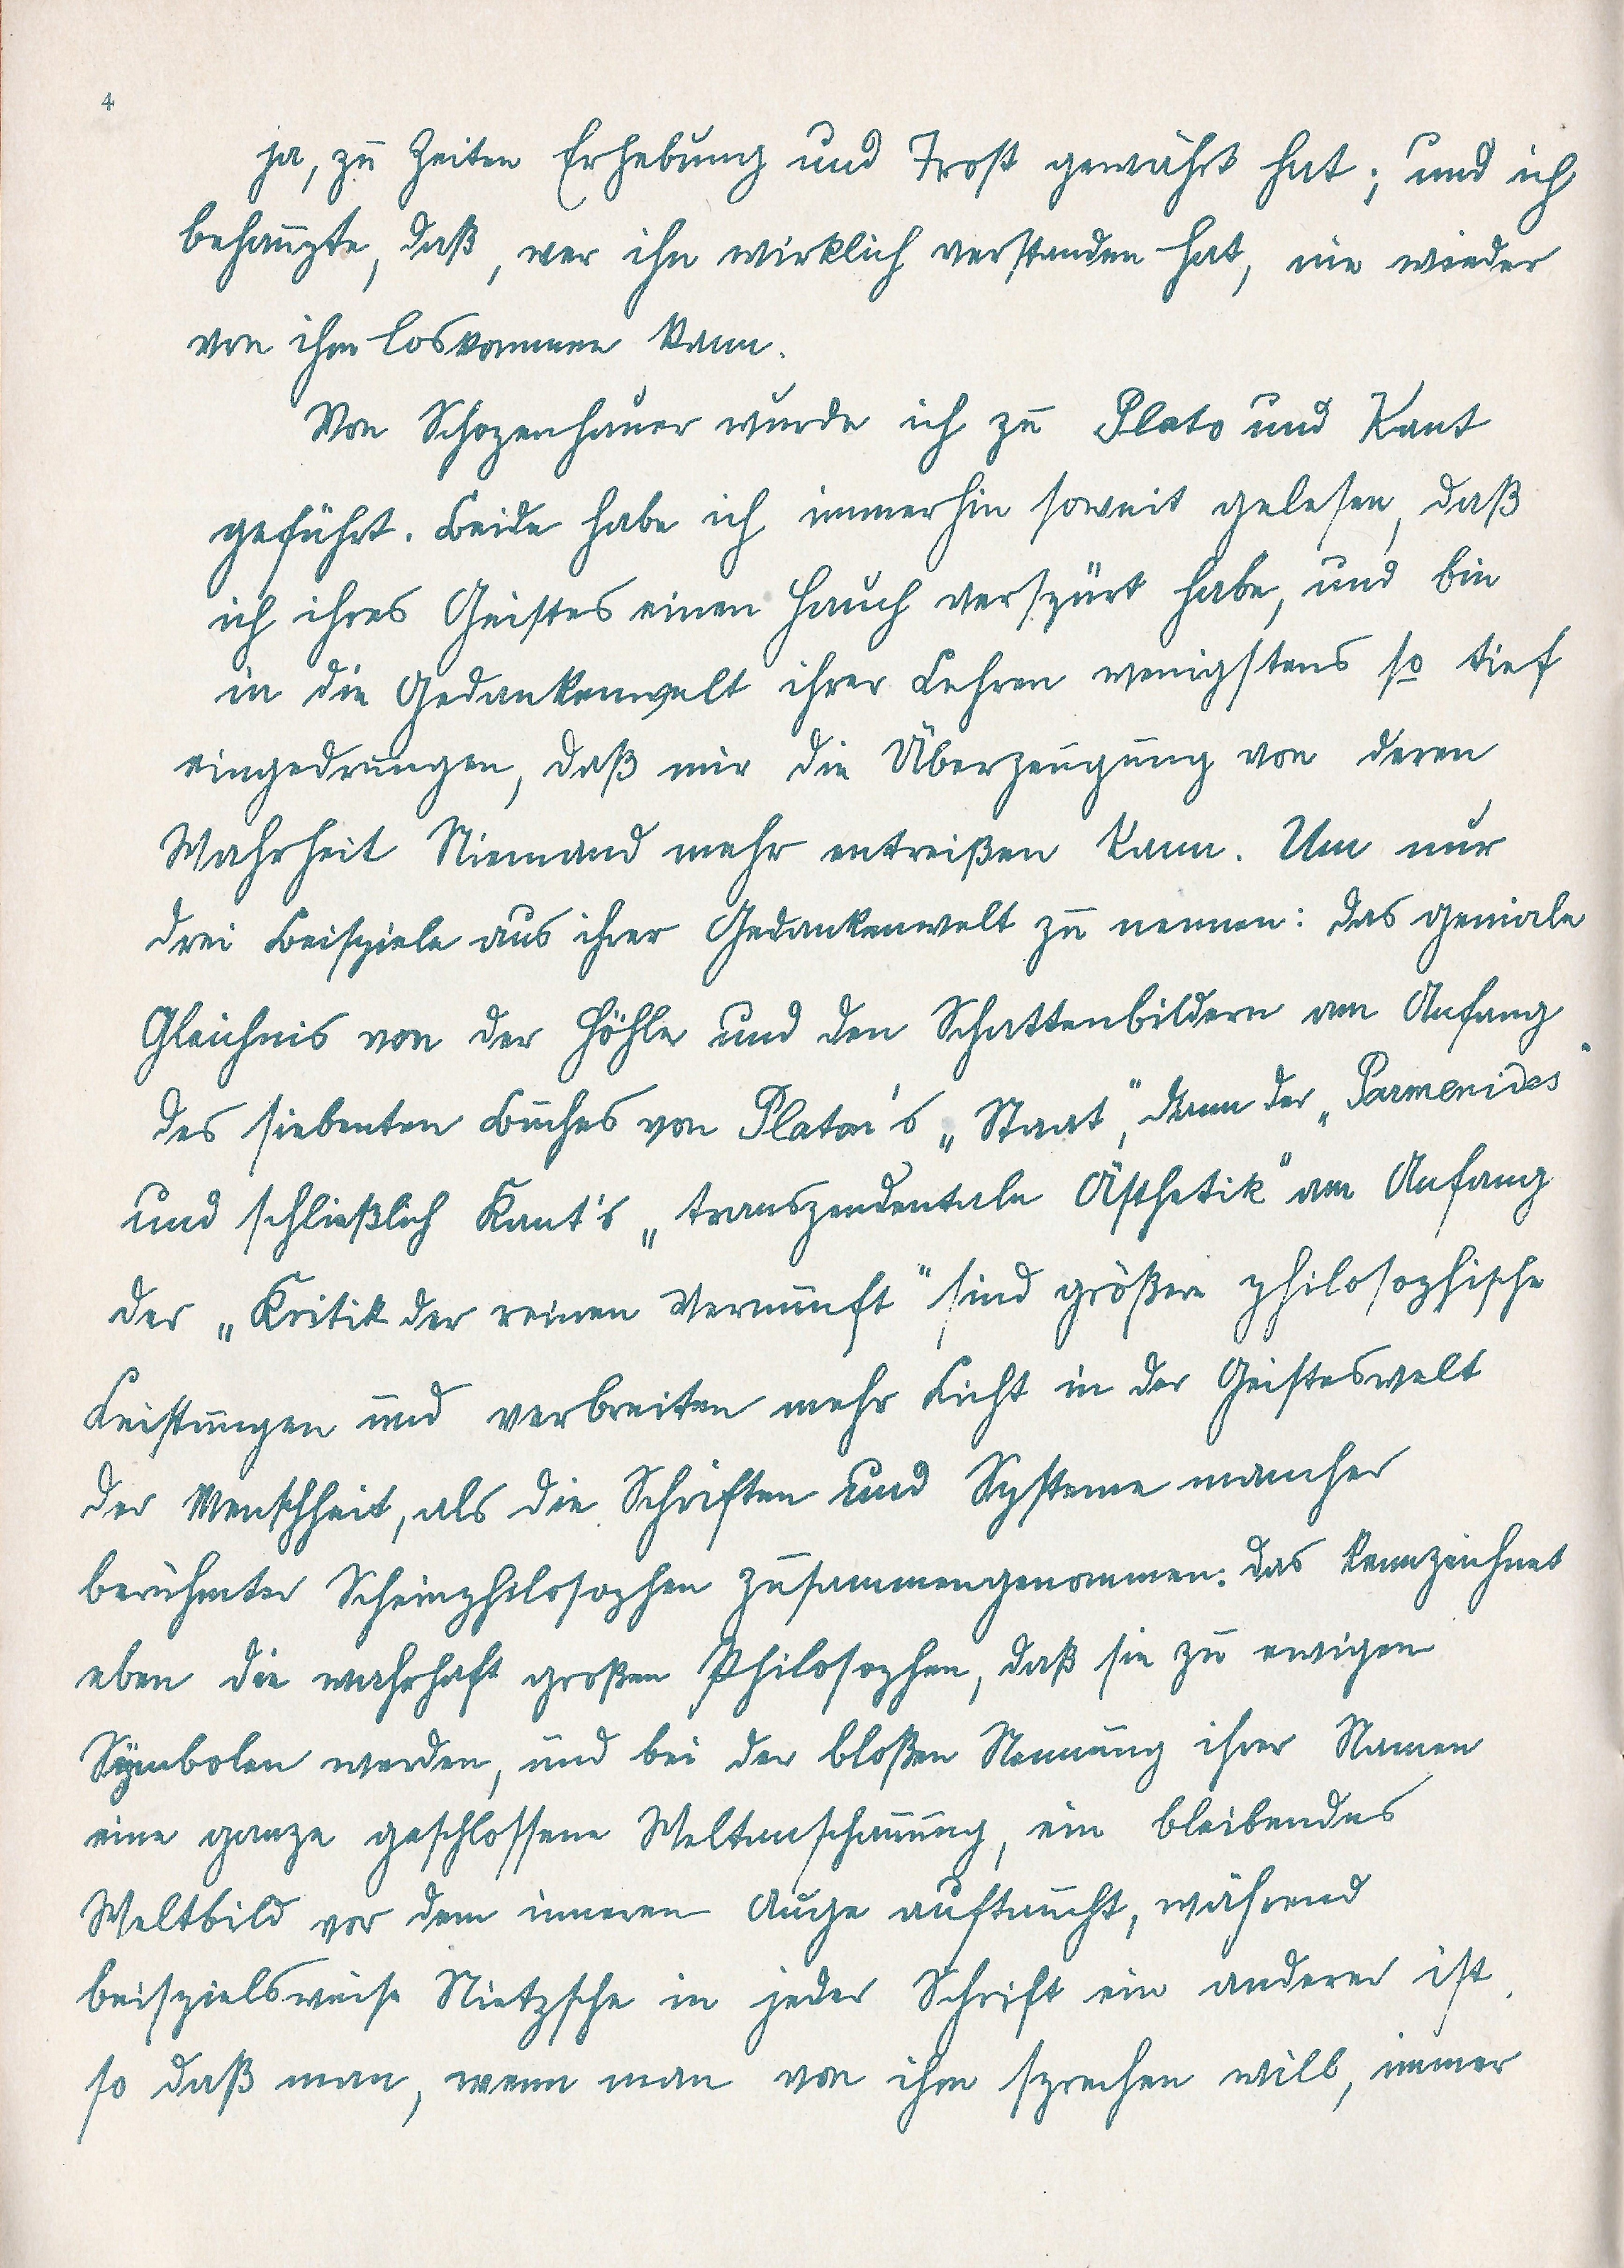 4
ja, zu Zeiten Erhebung und Trost gewährt hat; und ich
behaupte, daß, wer ihn wirklich verstanden hat, nie wieder
von ihm loskommen kann.
Von Schopenhauer wurde ich zu Plato und Kant
geführt. Beide habe ich immerhin soweit gelesen, daß
ich ihres Geistes einen Hauch verspürt habe, und bin
in die Gedankenwelt ihrer Lehren wenigstens so tief
eingedrungen, daß mir die Überzeugung von deren
Wahrheit Niemand mehr entreißen kann. Um nur
drei Beispiele aus ihrer Gedankenwelt zu nennen: das geniale
Gleichnis von der Höhle und den Schattenbildern am Anfang
des siebenten Buches von Platon's „Staat", dann der „Parmenides"
und schließlich Kant's „transzendentale Ästhetik" am Anfang
der „Kritik der reinen Vernunft" sind größere philosophische
Leistungen und verbreiten mehr Licht in der Geisteswelt
der Menschheit, als die Schriften und Systeme mancher
berühmter Scheinphilosophen zusammengenommen. Das kennzeichnet
eben die wahrhaft großen Philosophen, daß sie zu ewigen
Symbolen werden, und bei der bloßen Nennung ihrer Namen
eine ganze geschlossene Weltanschauung, ein bleibendes
Weltbild vor dem inneren Auge auftaucht, während
beispielsweise Nietzsche in jeder Schrift ein anderer ist,
so daß man, wenn man von ihm sprechen will, immer